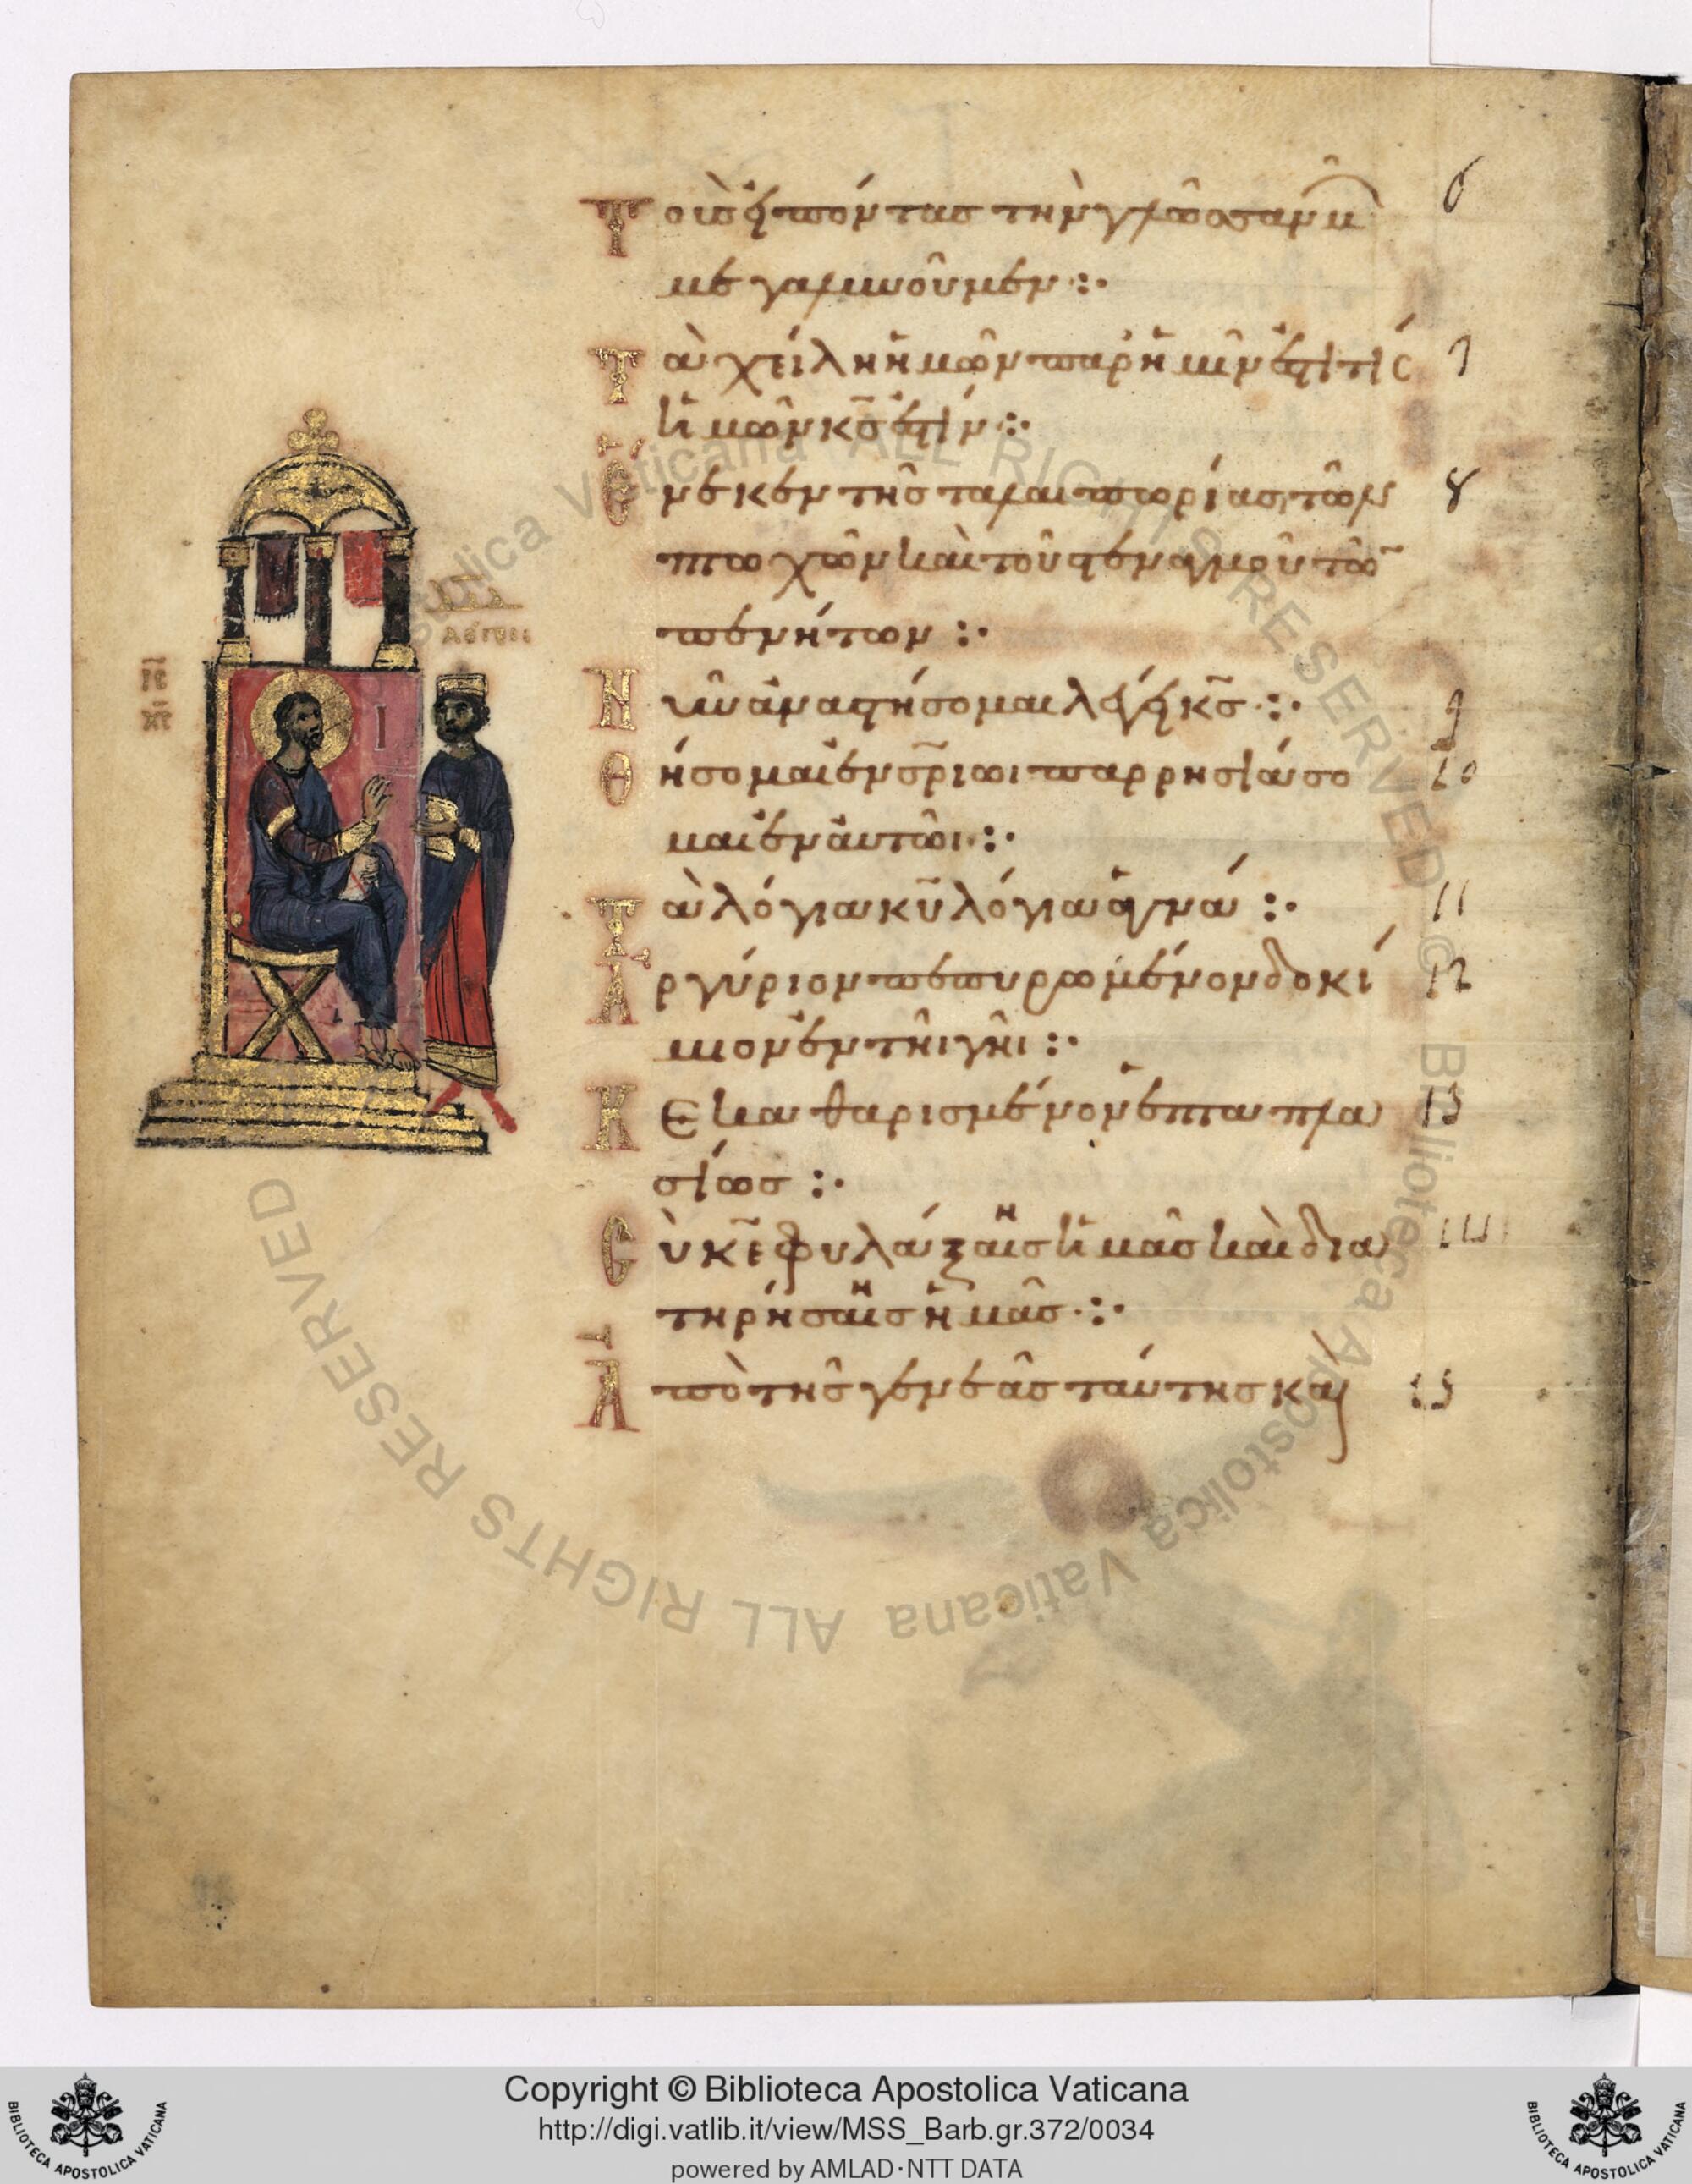 Τοὺς εἰπόντας τὴν γλῶσσαν ἡμῶ̑ν 6
μεγαλυνοῦμεν :·
Τὰ χείλη ἡμῶν παρ' ἡμῖν ἐστὶ τίς 7
ἡμῶν κ̅σ̅ ἐστίν :·
Ἕνεκεν τῆς ταλαιπωρίας τῶν 8
πτωχῶν καὶ τοῦ στεναγμοῦ τῶ̅
πενήτων :·
Νῦν ἀναστήσομαι λέγει κ̅σ̅ :· 9
Θήσομαι ἐν σ̅ρ̅ιωι παρρησιάσο 10
μαι ἐν αὐτῶι :·
Τὰ λόγια κ̅υ̅ λόγια ἁγνά :· 11
Ἀργύριον πεπυρωμένον δοκί 12
μιον ἐν τῆι γῆι :·
Κεκαθαρισμένον ἑπταπλα 13
σίως :·
Σὺ κ̅ε̅ φυλάξαις ἡμᾶς καὶ δια 14
τηρήσαις ἡμᾶς :·
Ἀπὸ τῆς γενεᾶς ταύτης καὶ 15
Ι̅C̅
Χ̅C̅
Biblioteca Apostolica Vaticana ALL RIGHTS RESERVED © Biblioteca Apostolica Vaticana ALL RIGHTS RESERVED
Copyright © Biblioteca Apostolica Vaticana
http://digi.vatlib.it/view/MSS_Barb.gr.372/0034
powered by AMLAD·NTT DATA
BIBLIOTECA APOSTOLICA VATICANA
BIBLIOTECA APOSTOLICA VATICANA